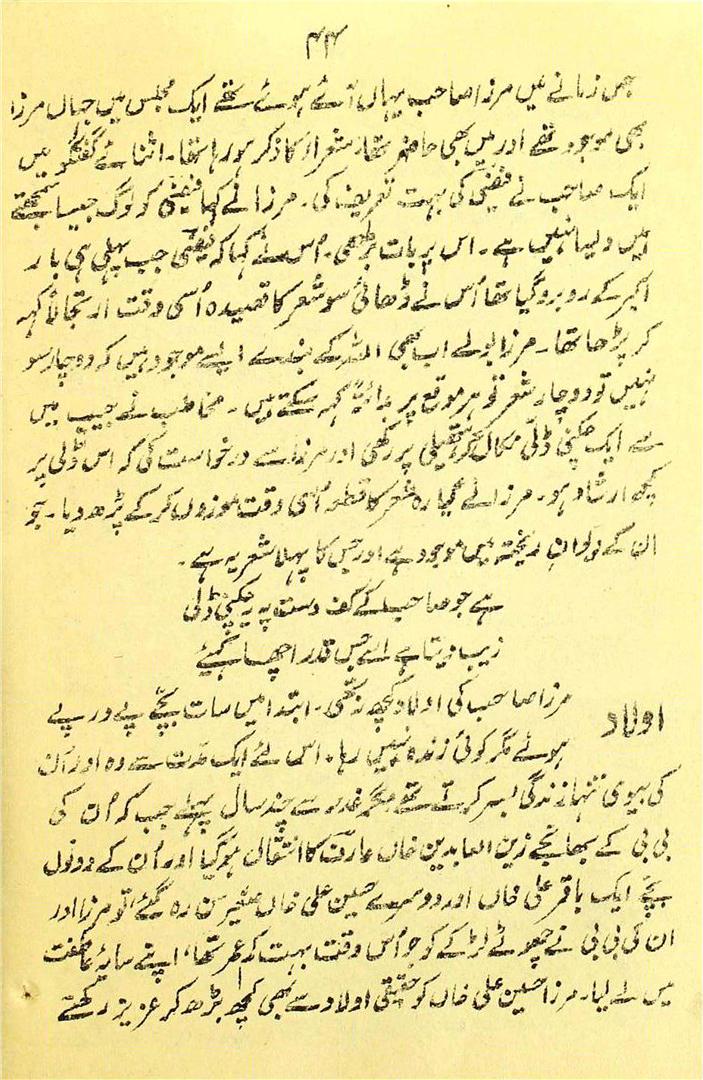 ۴۴
جس زمانے میں مرزا صاحب یہاں آئے ہوئے تھے ایک مجلس میں جہاں مرزا
بھی موجود تھے اور میں بھی حاضر تھا شعراء کا ذکر ہو رہا تھا۔ اثنائے گفتگو میں
ایک صاحب نے فیضی کی بہت تعریف کی۔ مرزا نے کہا فیضی کو لوگ جیسا سمجھتے
ہیں ویسا نہیں ہے۔ اس پر بات بڑھی۔ اُس نے کہا کہ فیضی جب پہلی ہی بار
اکبر کے روبرو گیا تھا اُس نے ڈھائی سو شعر کا قصیدہ اُسی وقت ارتجالاً کہہ
کر پڑھا تھا۔ مرزا بولے اب بھی اللہ کے بندے ایسے موجود ہیں کہ دو چار سو
نہیں تو دو چار شعر تو ہر موقع پر بداہۃً کہہ سکتے ہیں۔ مخاطب نے جیب میں
سے ایک چکنی ڈلی نکال کر ہتھیلی پر رکھی اور مرزا سے درخواست کی کہ اس ڈلی پر
کچھ ارشاد ہو۔ مرزا نے گیارہ شعر کا قطعہ اُسی وقت موزوں کر کے پڑھ دیا۔ جو
ان کے دیوانِ ریختہ میں موجود ہے اور جس کا پہلا شعر یہ ہے۔
ہے جو صاحب کے کف دست پہ یہ چکنی ڈلی
زیب دیتا ہے اسے جس قدر اچھا کہیے
اولاد مرزا صاحب کی اولاد کچھ نہ تھی۔ ابتدا میں سات بچّے پے در پے
ہوئے مگر کوئی زندہ نہیں رہا۔ اس لئے ایک مدّت سے وہ اور اُن
کی بیوی تنہا زندگی بسر کرتے تھے مگر غدر سے چند سال پہلے جب کہ اُن کی
بی بی کے بھانجے زین العابدین خاں عارفؔ کا انتقال ہو گیا اور اُن کے دونوں
بچّے ایک باقر علی خاں اور دوسرے حسین علی خاں صغیر سن رہ گئے، تو مرزا اور
ان کی بی بی نے چھوٹے لڑکے کو جو اُس وقت بہت کم عمر تھا، اپنے سایۂ عاطفت
میں لے لیا۔ مرزا حسین علی خاں کو حقیقی اولاد سے بھی کچھ بڑھ کر عزیز رکھتے